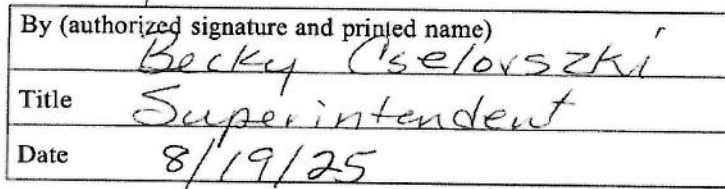 By (authorized signature and printed name)
Becky Cselovszki
Title Superintendent
Date 8/19/25